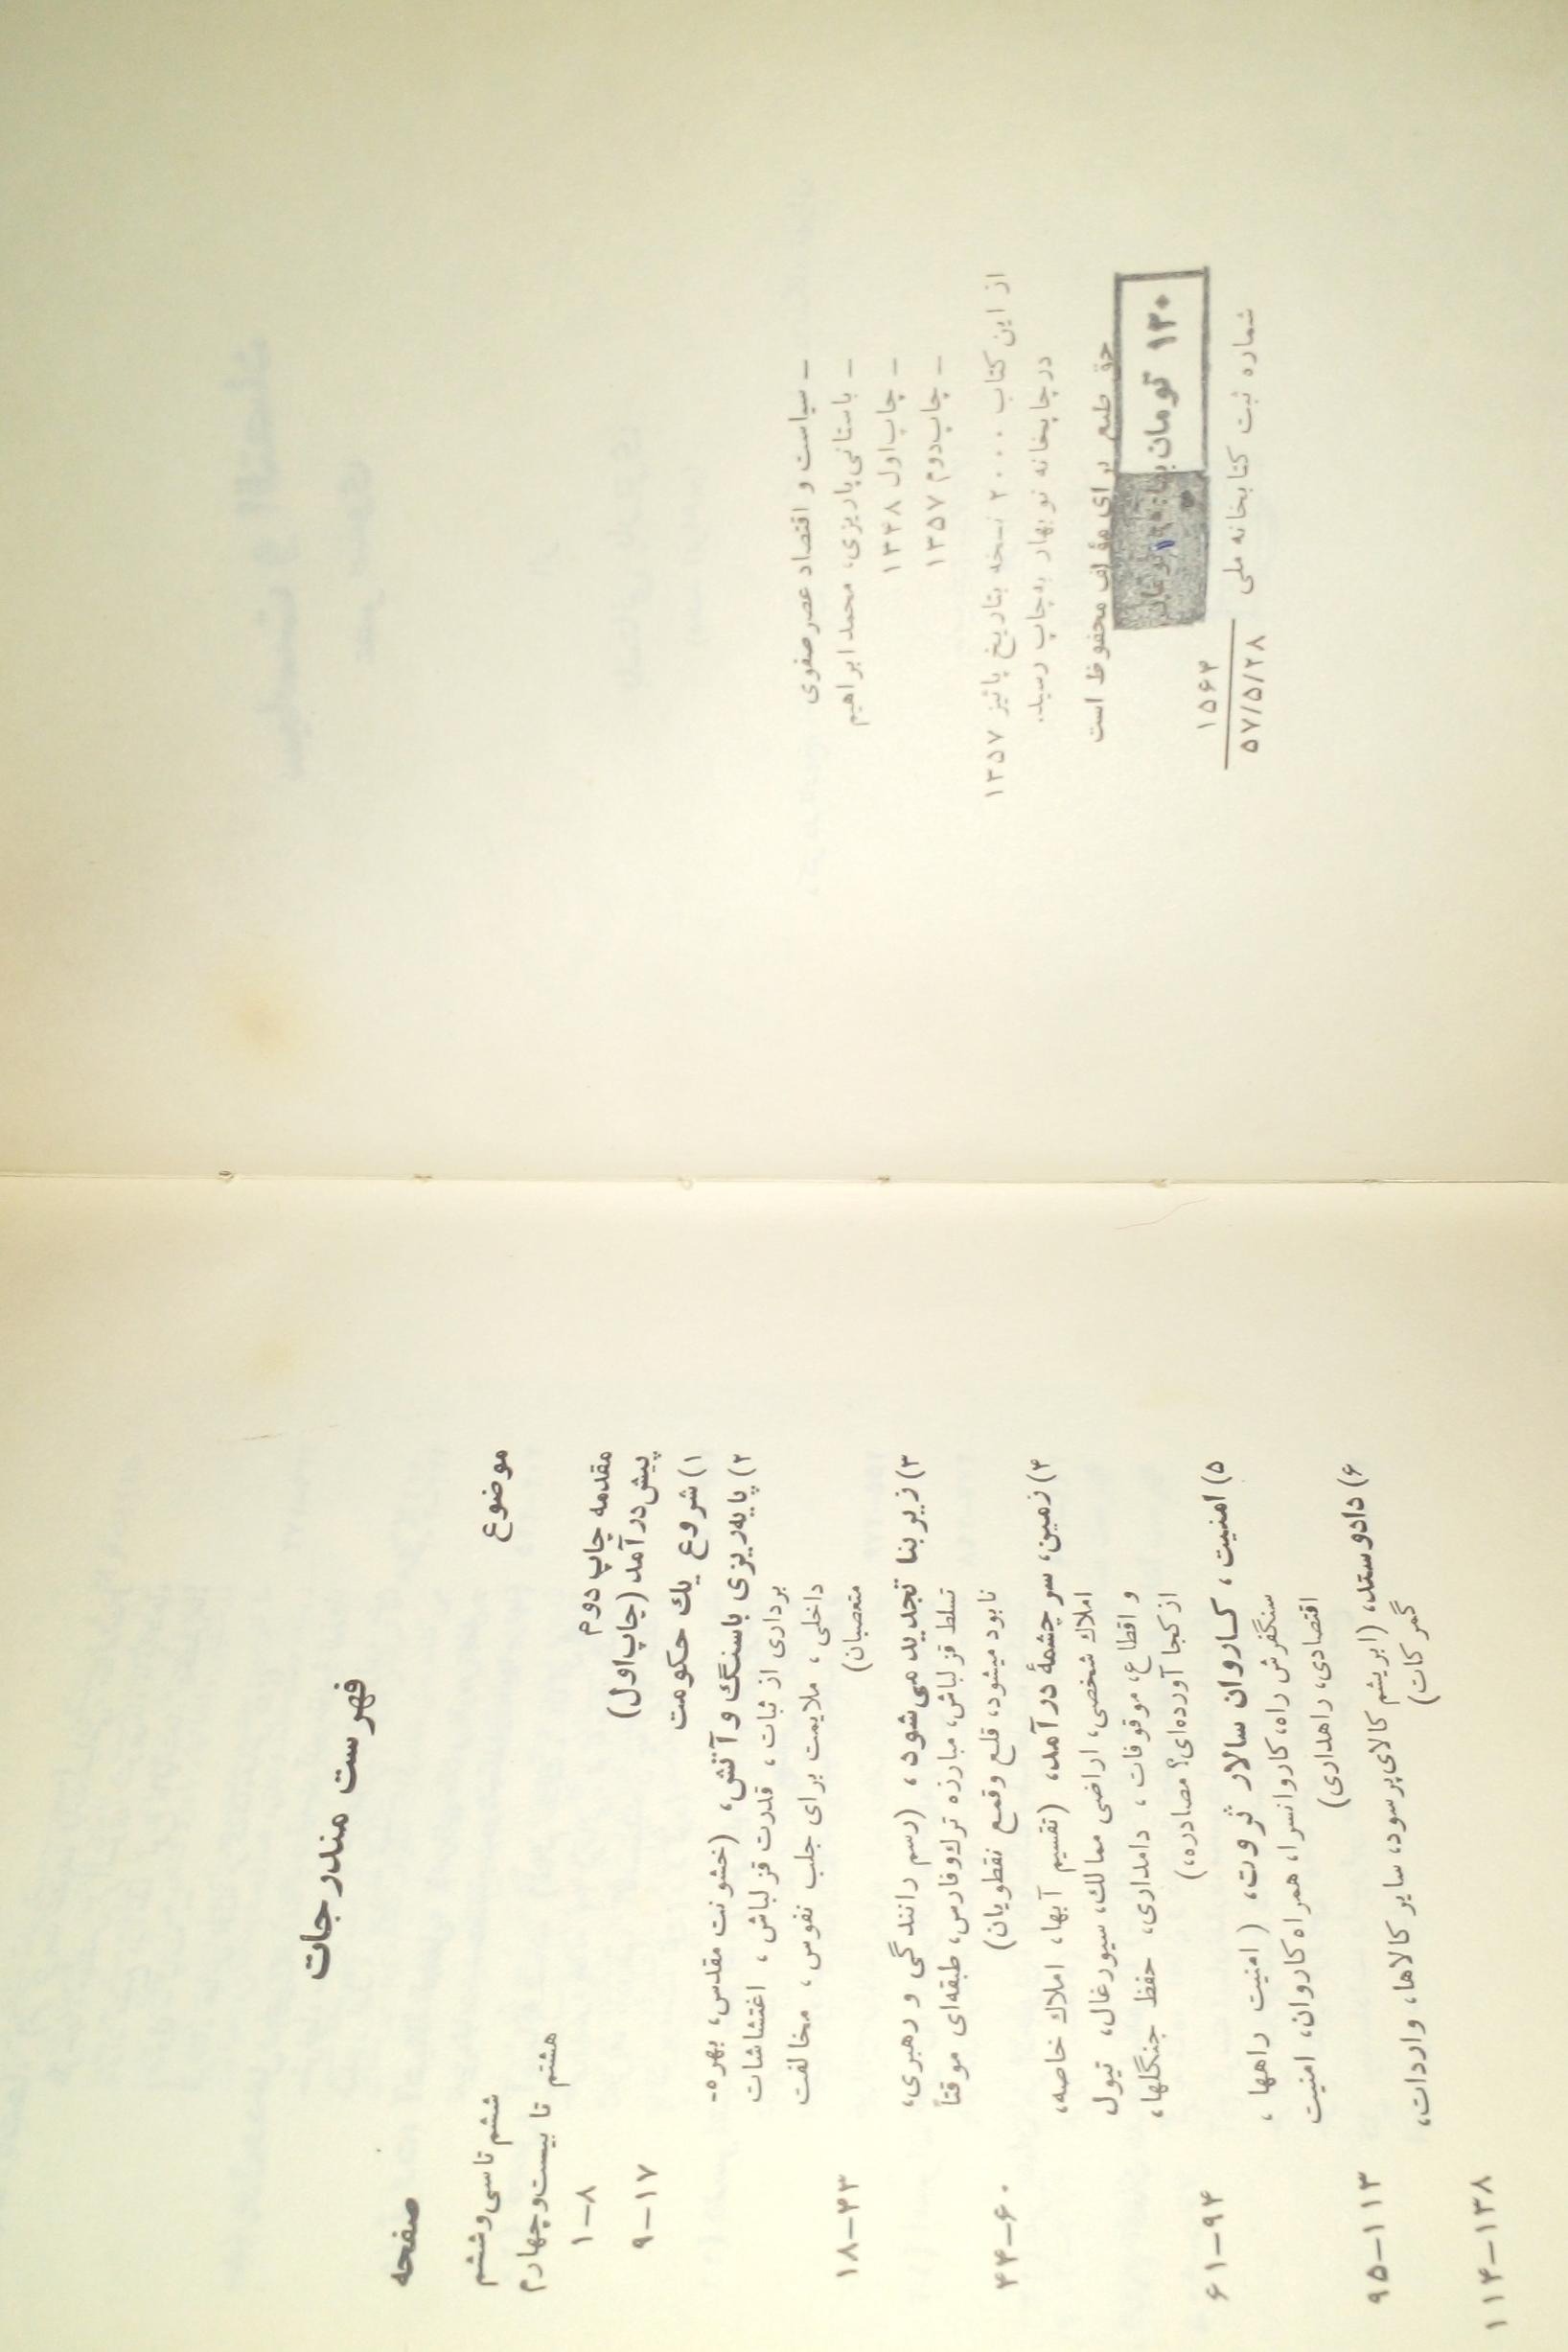 - سیاست و اقتصاد عصر صفوی
- باستانی پاریزی، محمد ابراهیم
- چاپ اول ۱۳۴۸
- چاپ دوم ۱۳۵۷
از این کتاب ۲۰۰۰ نسخه بتاریخ پائیز ۱۳۵۷
در چاپخانه نوبهار به چاپ رسید.
حق طبع برای مؤلف محفوظ است
۱۳۰ تومان
شماره ثبت کتابخانه ملی ۱۵۶۳
۵۷/۵/۲۸
فهرست مندرجات
موضوع صفحه
مقدمه چاپ دوم ششم تا سی و ششم
پیش درآمد (چاپ اول) هشتم تا بیست و چهارم
۱) شروع یک حکومت ۱-۸
۲) پایه‌ریزی باسنگ و آتش، (خشونت مقدس، بهره- ۹-۱۷
برداری از ثبات، قدرت قزلباش، اغتشاشات
داخلی، ملایمت برای جلب نفوس، مخالفت
متعصبان) ۱۸-۴۳
۳) زیر بنا تجدید می‌شود، (رسم رانندگی و رهبری،
تسلط قزلباش، مبارزه ترک و فارس، طبقه‌ای موقتاً
نابود میشود، قلع وقمع نقطویان) ۴۴-۶۰
۴) زمین، سرچشمهٔ درآمد، (تقسیم آبها، املاک خاصه،
املاک شخصی، اراضی ممالک، سیورغال، تیول
و اقطاع، موقوفات، دامداری، حفظ جنگلها،
از کجا آورده‌ای؟ مصادره،) ۶۱-۹۴
۵) امنیت، کاروان سالار ثروت، (امنیت راهها،
سنگفرش راه، کاروانسرا، همراه کاروان، امنیت
اقتصادی، راهداری) ۹۵-۱۱۳
۶) دادوستد، (ابریشم کالای پرسود، سایر کالاها، واردات،
گمرکات) ۱۱۴-۱۳۸